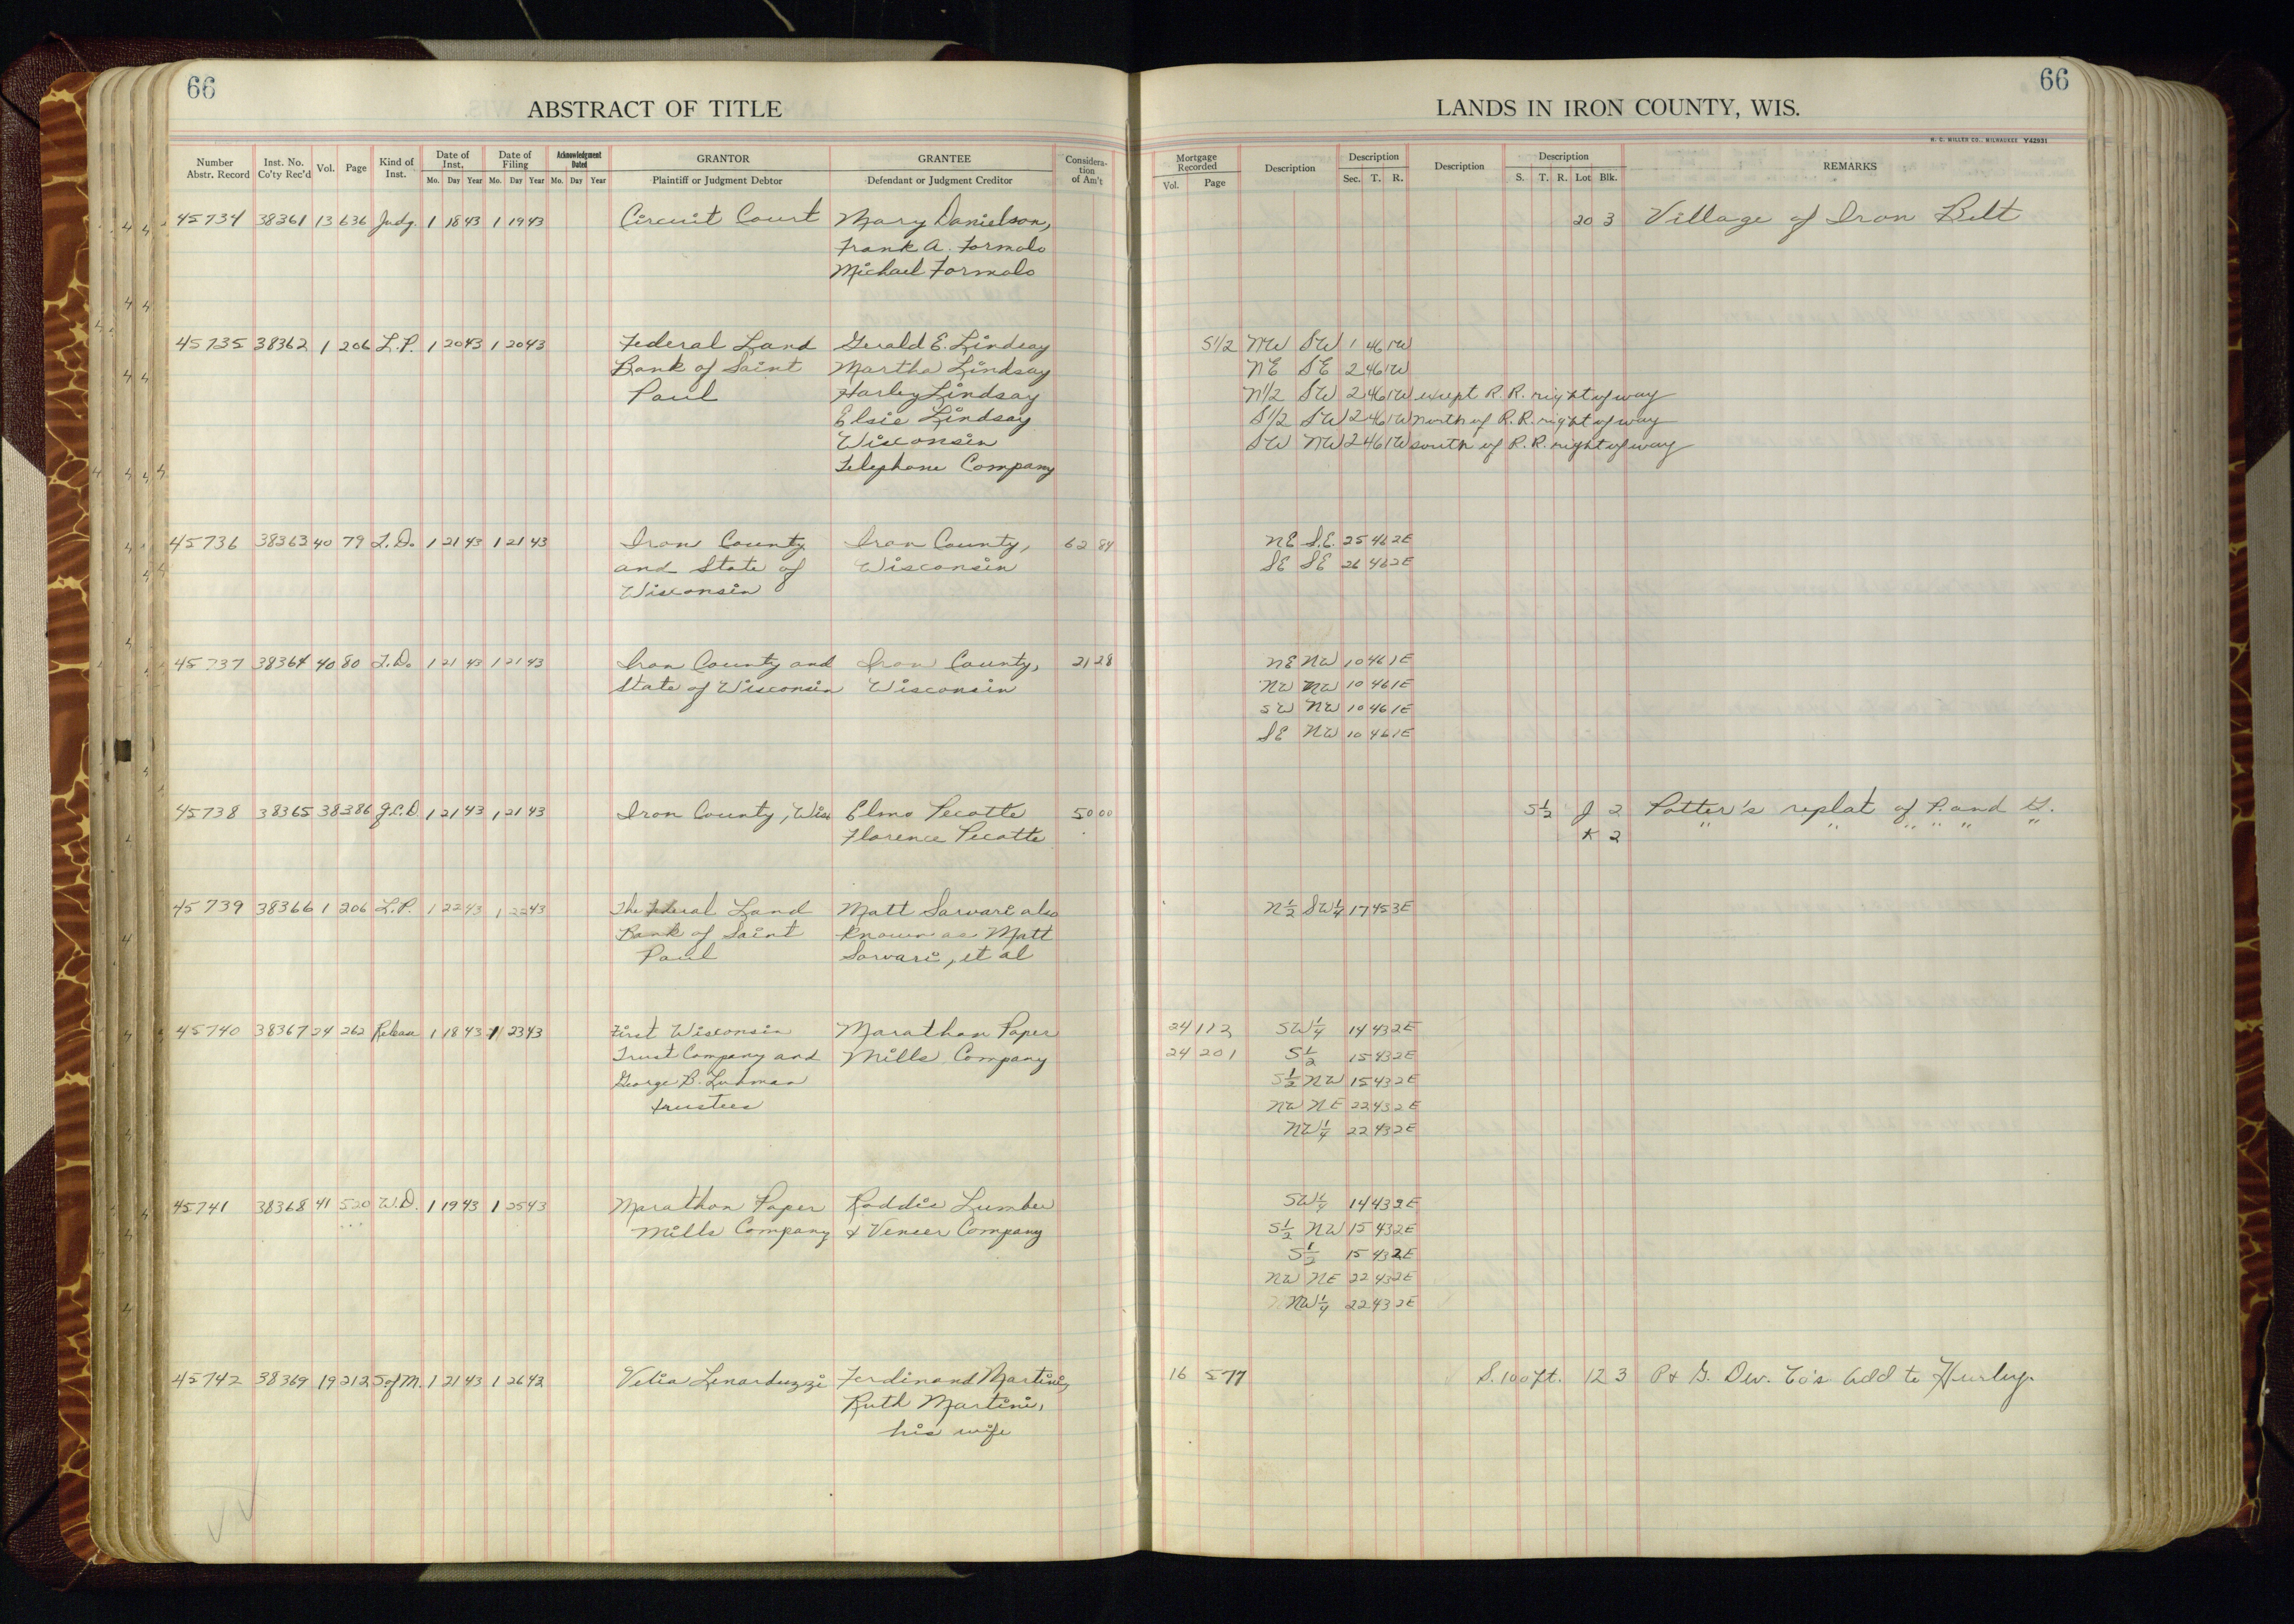 66
ABSTRACT OF TITLE
Number Abstr. Record Inst. No. Co'ty Rec'd Vol. Page Kind of Inst. Date of Inst. Mo. Day Year Date of Filing Mo. Day Year Acknowledgment Dated Mo. Day Year GRANTOR Plaintiff or Judgment Debtor GRANTEE Defendant or Judgment Creditor Considera-tion of Am't
45734 38361 13 636 Judg. 1 18 43 1 19 43 Circuit Court Mary Danielson,
Frank A. Formolo
Michael Formolo
45735 38362 1 206 L.P. 1 20 43 1 20 43 Federal Land Gerald E. Lindsay
Bank of Saint Martha Lindsay
Paul Harley Lindsay
Elsie Lindsay
Wisconsin
Telephone Company
45736 38363 40 79 T.D. 1 21 43 1 21 43 Iron County Iron County, 62 84
and State of Wisconsin
Wisconsin
45737 38364 40 80 T.D. 1 21 43 1 21 43 Iron County and Iron County, 21 28
State of Wisconsin Wisconsin
45738 38365 38 386 Q.C.D 1 21 43 1 21 43 Iron County, Wis Elmo Pecotte 50 00
Florence Pecotte
45739 38366 1 206 L.P. 1 22 43 1 22 43 The Federal Land Matt Sarvari also
Bank of Saint known as Matt
Paul Sorvari, et al
45740 38367 24 262 Release 1 18 43 1 23 43 First Wisconsin Marathon Paper
Trust Company and Mills Company
George B. Luhman
trustees
45741 38368 41 520 W.D. 1 19 43 1 25 43 Marathon Paper Roddis Lumber
Mills Company & Veneer Company
45742 38369 19 212 S of M. 1 21 43 1 26 43 Velia Lenarduzzi Ferdinand Martini,
Ruth Martini,
his wife
66
LANDS IN IRON COUNTY, WIS.
H. C. MILLER CO., MILWAUKEE Y42931
Mortgage Recorded Vol. Page Description Description Sec. T. R. Description Description S. T. R. Lot Blk. REMARKS
20 3 Village of Iron Belt
S1/2 NW SW 1 46 1W
NE SE 2 46 1W
N1/2 SW 2 46 1W except R.R. right of way
S1/2 SW 2 46 1W north of R.R. right of way
SW NW 2 46 1W south of R.R. right of way
NE S.E. 25 46 2E
SE SE 26 46 2E
NE NW 10 46 1E
NW NW 10 46 1E
SW NW 10 46 1E
SE NW 10 46 1E
S½ J 2 Potter's replat of P. and G.
K 2 " " " " " "
N½ SW¼ 17 45 3E
24 112 SW¼ 14 43 2E
24 201 S½ 15 43 2E
S½ NW 15 43 2E
NW NE 22 43 2E
NW¼ 22 43 2E
SW¼ 14 43 2E
S½ NW 15 43 2E
S½ 15 43 2E
NW NE 22 43 2E
NW¼ 22 43 2E
16 577 S. 100 ft. 12 3 P & G. Dev. Co's Add to Hurley.